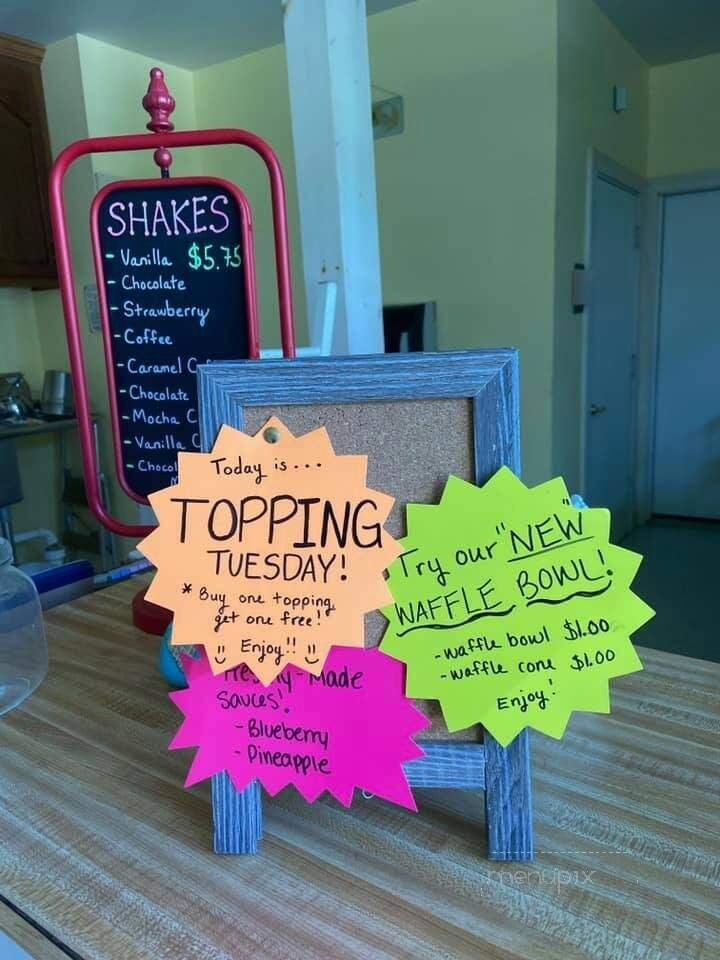 SHAKES
- Vanilla $5.75
- Chocolate
- Strawberry
- Coffee
- Caramel C
- Chocolate
- Mocha C
- Vanilla C
- Chocol
Today is...
TOPPING
TUESDAY!
* Buy one topping,
get one free!
Enjoy!!
Try our "NEW"
WAFFLE BOWL!
- waffle bowl $1.00
- waffle cone $1.00
Enjoy!
-Made
Sauces!
- Blueberry
- Pineapple
menupix